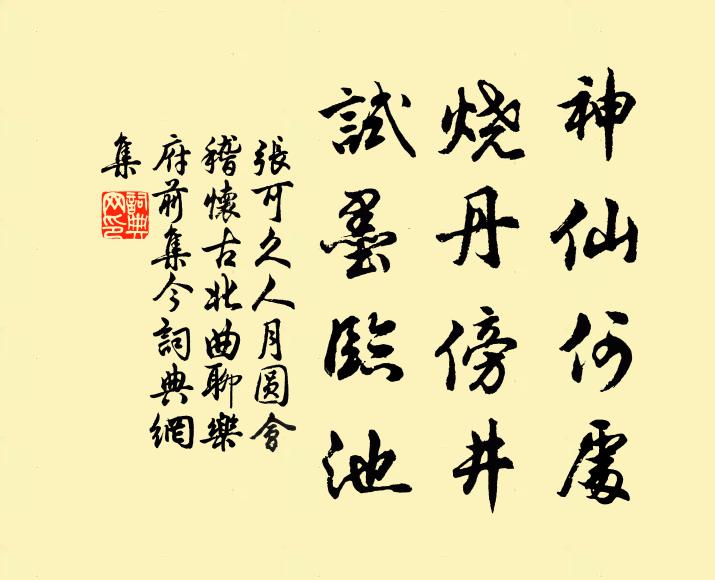 神仙何處
燒丹傍井
試墨臨池
張可久人月圆會
稽懷古北曲聊樂
府前集今詞典網
集
詞典
网印